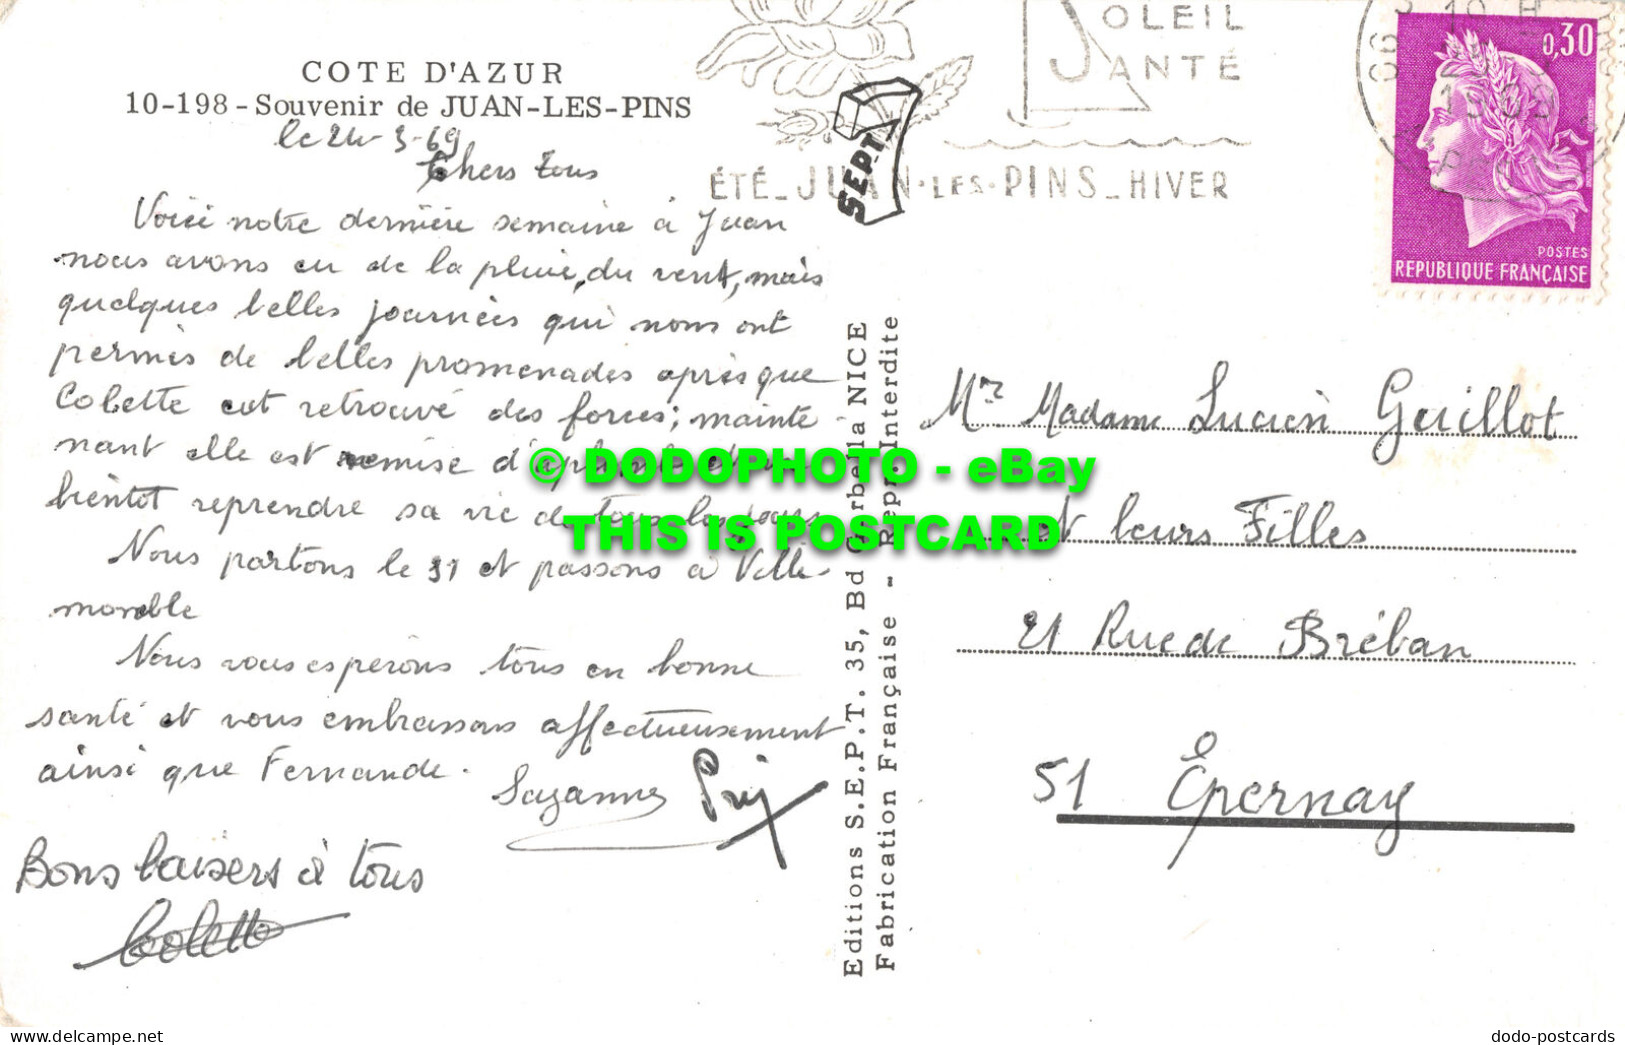 COTE D'AZUR
10-198 - Souvenir de JUAN-LES-PINS
le 24-3-69
Chers tous
Voici notre dernière semaine à Juan
nous avons eu de la pluie, du vent, mais
quelques belles journées qui nous ont
permis de belles promenades après que
Colette eut retrouvé des forces; mainte-
nant elle est remise d'aplomb et va
bientôt reprendre sa vie de tous les jours
Nous partons le 31 et passons à Ville-
Nous vous espérons tous en bonne
santé et vous embrassons affectueusement
ainsi que Fernande.
Suzanne
Bons baisers à tous
Colette
SOLEIL
SANTÉ
ÉTÉ_JUAN·LES·PINS_HIVER
SEPT
0,30
POSTES
REPUBLIQUE FRANÇAISE
Editions S.E.P.T. 35, Bd Gorbella NICE
Fabrication Française - Repr. Interdite
Mr Madame Lucien Guillot
et leurs Filles
21 Rue de Bréban
51 Épernay
© DODOPHOTO - eBay
THIS IS POSTCARD
www.delcampe.net
dodo-postcards